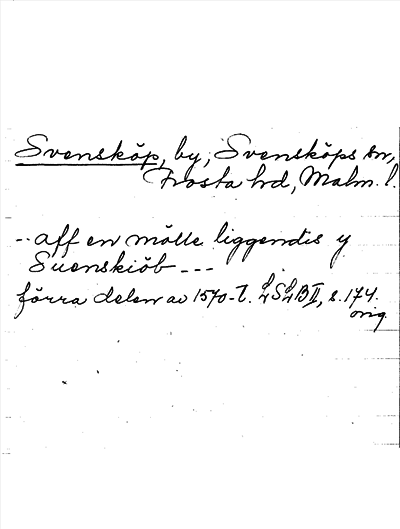 Svensköp, by, Svensköps sn,
Frosta hd, Malm. l.
-- aff en mölle liggendis y
Suenskiöb ---
förra delen av 1570-t. LSLB II, s. 174.
orig.